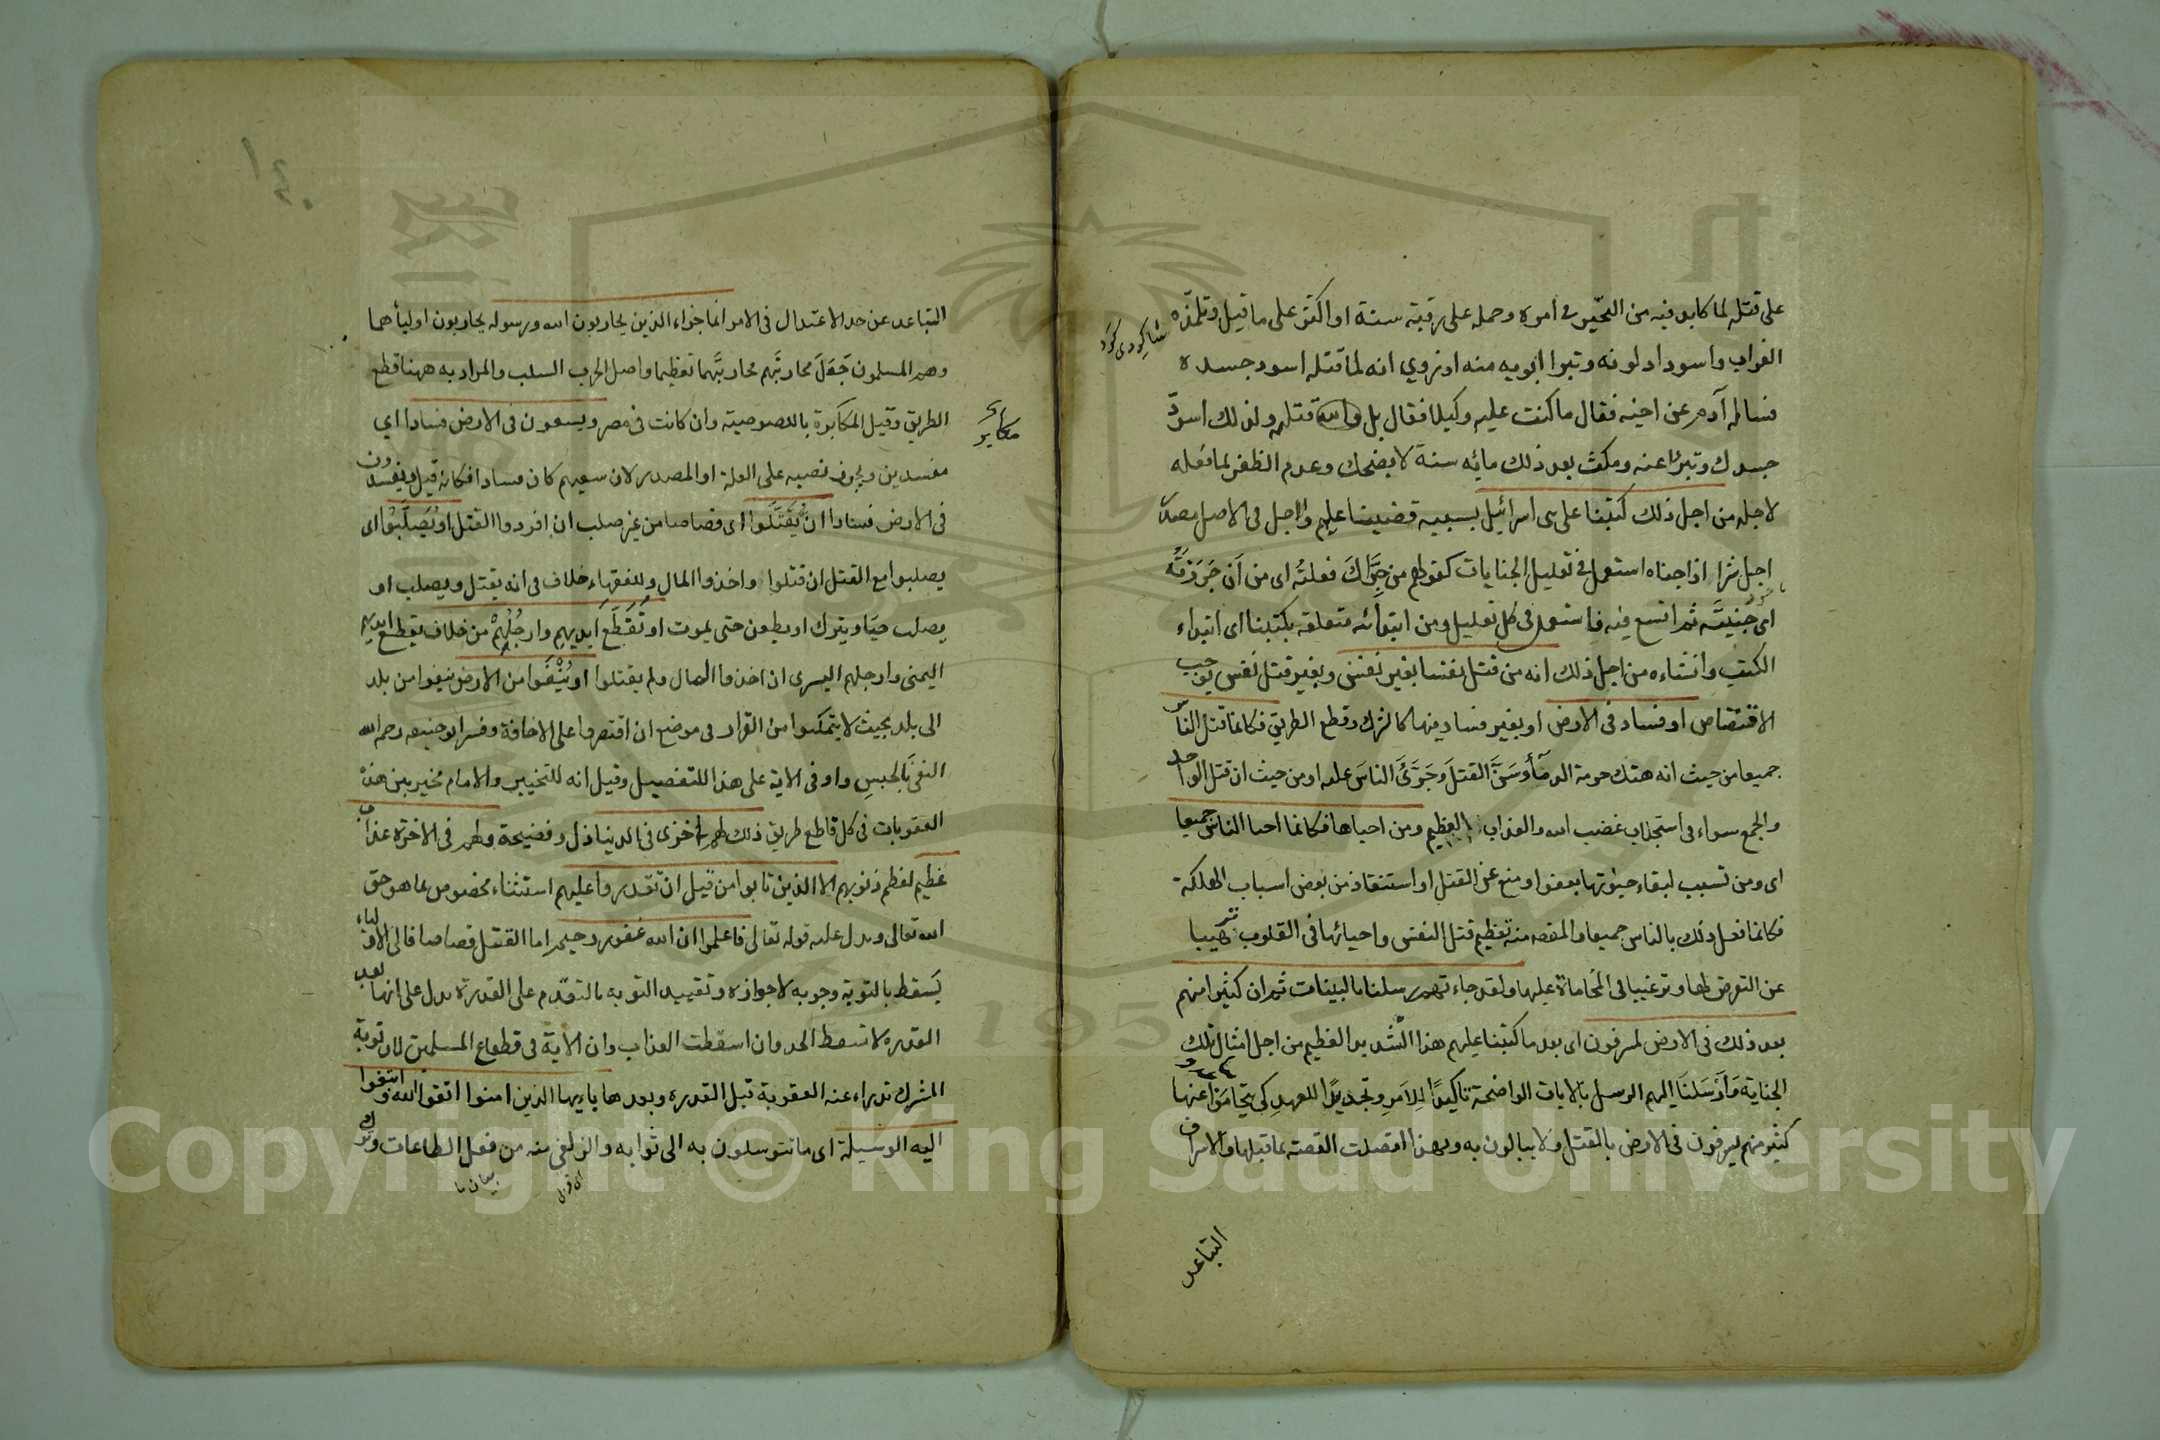 على قتله لما كابد فيه من التحيّر في امره وحمله على رقبته سنة او اكثر على ما قيل وتلمّذه
الغراب واسوداد لونه وتبرا ابويه منه اذ روي انه لما قتله اسود جسده
فساله آدم عن اخيه فقال ما كنت عليه وكيلا فقال بل والله قتلته ولذلك اسودّ
جسدك وتبرّا عنه ومكث بعد ذلك مائه سنة لا يضحك وعدم الظفر بما فعله
لاجله من اجل ذلك كتبنا على بنى اسرائيل بسببه قضينا عليهم واجل فى الاصل مصدر
اجل شرا اذا جناه استعمل فى تعليل الجنايات كقولهم من جرّاك فعلته اى من اَن جررته
اى جنيته ثم اتسع فيه فاستعمل فى كل تعليل ومن ابتدائه متعلقه بكتبنا اى ابتداء
الكتب وانشاءه من اجل ذلك انه من قتل نفسا بغير نفس وبغير قتل نفس يوجب
الاقتصاص او فساد فى الارض او بغير فساد فيها كالشرك وقطع الطريق فكانما قتل الناس
جميعا من حيث انه هتك حرمة الدماء وسنَّ القتلَ وجرّئَ الناسَ عليه او من حيث ان قتل الواحد
والجمع سواء فى استجلاب غضب الله والعذاب العظيم ومن احياها فكانما احيا الناس جميعا
اى ومن تسبب لبقاء حيوتها بعفو او منع عن القتل او استنقاذ من بعض اسباب الهلكة
فكانما فعل ذلك بالناس جميعا والمقصد منه تعظيم قتل النفس واحيائها فى القلوب ترهيبا
عن التعرض لها وترغيبا فى المحاماة عليها ولقد جاءتهم رسلنا بالبينات ثم ان كثيرا منهم
بعد ذلك فى الارض لمسرفون اى بعد ما كتبنا عليهم هذا التشديد العظيم من اجل امثال تلك
الجناية وَاَرسَلنَا اليهم الرسل بالايات الواضحة تاكيدًا لِلاَمرِ وتجديدًا للعهدِ كى يتحامَوا عنها و
كثير منهم يسرفون فى الارض بالقتل ولا يبالون به وبهذا اتصلت القصة بما قبلها والاسراف
التباعد
التباعد عن حد الاعتدال فى الامر انما جزاء الذين يحاربون الله ورسوله يحاربون اولياءهما
وهم المسلمون جَعَلَ محاربتَهم محاربتَهما تعظيما واصل الحرب السلب والمراد به ههنا قطع
الطريق وقيل المكابرة باللصوصية وان كانت فى مصر ويسعون فى الارض فسادا اي
مفسدين ويجوز نصبه على العلة او المصدر لان سعيهم كان فسادا فكانه قيل ويفسدون
فى الارض فسادا ان يُقَتَّلوا اى قصاصا من غير صلب ان افردوا القتل او يُصَلَّبُوا اى
يصلبوا مع القتل ان قتلوا واخذوا المال وللفقهاء خلاف فى انه يقتل ويصلب او
يصلب حيا ويترك او يطعن حتى يموت او تُقَطَّعَ اَيديهم وارجُلُهم من خلاف يقطع ايديهم
اليمنى وارجلهم اليسرى ان اخذوا المال ولم يقتلوا او يُنْفَوا من الارض ينفوا من بلد
الى بلد بحيث لا يتمكنوا من القرار فى موضع ان اقتصروا على الاخافة وفسر ابو حنيفه رحمه الله
النفيَ بالحبسِ واو فى الاية على هذا للتفصيل وقيل انه للتخيير والامام مخير بين هذه
العقوبات فى كل قاطع طريق ذلك لهم خزى فى الدنيا ذل وفضيحة ولهم فى الاخرة عذاب
عظيم لعظم ذنوبهم الا الذين تابوا من قبل ان تقدروا عليهم استثناء مخصوص بما هو حق
الله تعالى ويدل عليه قوله تعالى فاعلموا ان الله غفور رحيم اما القتل قصاصا فالى الاولياء
يَسقط بالتوبة وجوبه لا جوازه وتقييد التوبه بالتقدّم على القدرة يدل على انها بعد
القدرة لا تسقط الحد وان اسقطت العذاب وان الاية فى قطاع المسلمين لان توبة
المشرك تدراء عنه العقوبة قبل القدرة وبعدها يا ايها الذين امنوا اتقوا الله وابتغوا
اليه الوسيلة اى ما تتوسلون به الى ثوابه والزلفى منه من فعل الطاعات وترك
بيان ما